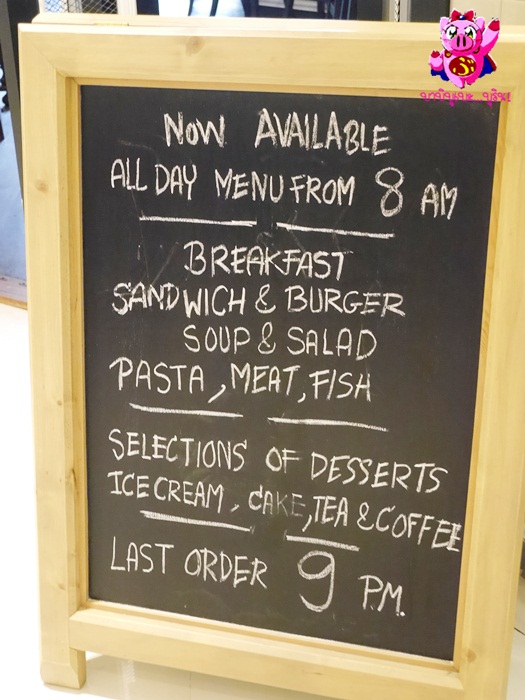 NOW AVAILABLE
ALL DAY MENU FROM 8 AM
BREAKFAST
SANDWICH & BURGER
SOUP & SALAD
PASTA, MEAT, FISH
SELECTIONS OF DESSERTS
ICE CREAM, CAKE, TEA & COFFEE
LAST ORDER 9 P.M.